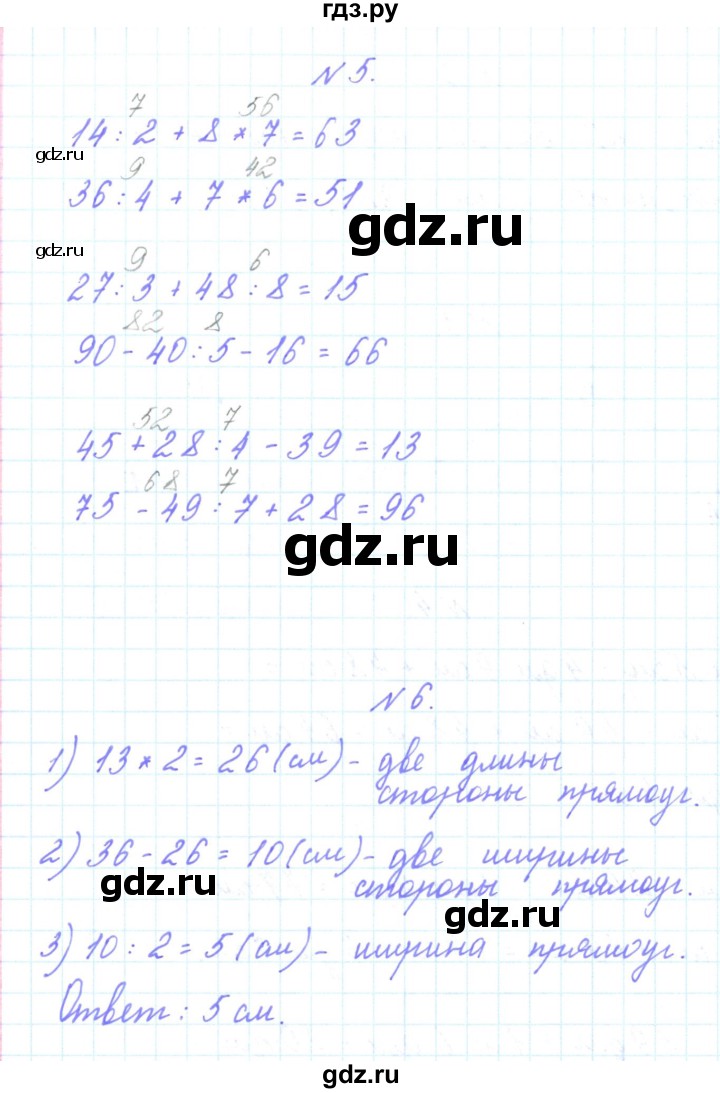 гдз.ру
N 5.
7 56
14 : 2 + 8 * 7 = 63
gdz.ru
9 42
36 : 4 + 7 * 6 = 51
gdz.ru
gdz.ru
9 6
27 : 3 + 48 : 8 = 15
82 8
90 - 40 : 5 - 16 = 66
52 7
45 + 28 : 4 - 39 = 13
68 7
75 - 49 : 7 + 28 = 96
gdz.ru
N 6.
1) 13 * 2 = 26 (см) - две длины
стороны прямоуг.
2) 36 - 26 = 10 (см) - две ширины
gdz.ru
стороны прямоуг.
gdz.ru
3) 10 : 2 = 5 (см) - ширина прямоуг.
Ответ : 5 см.
gdz.ru